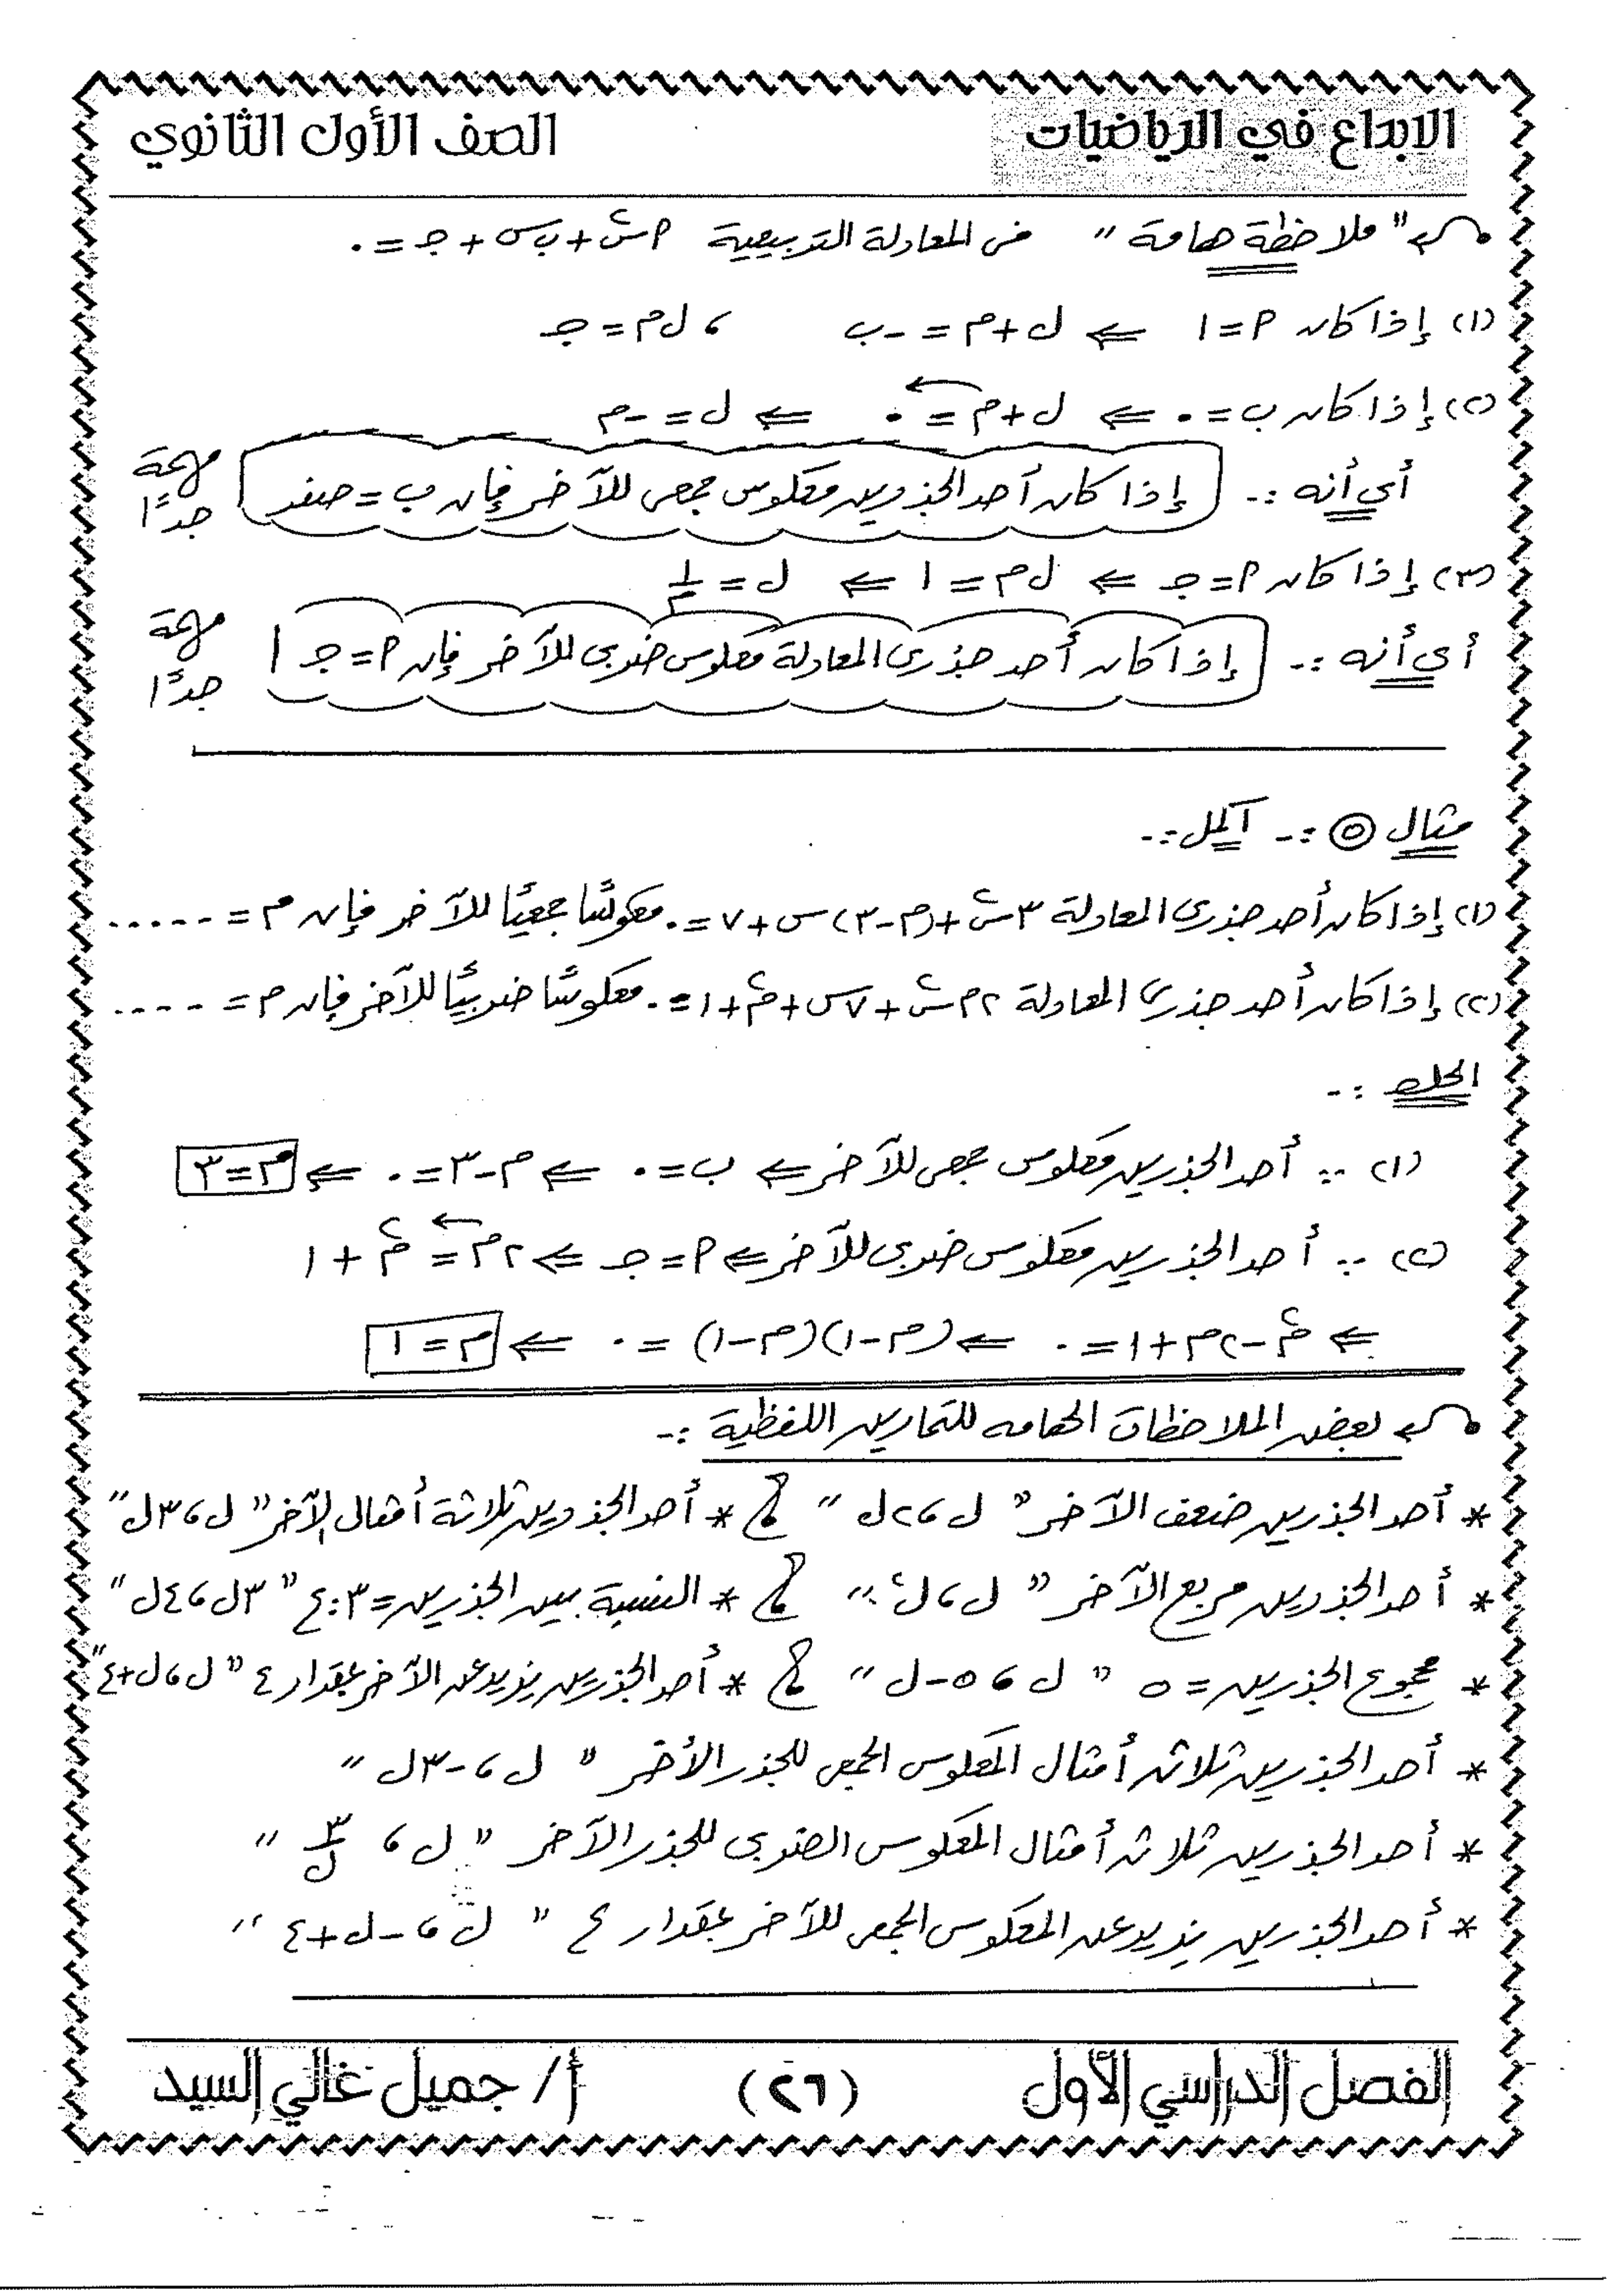 الابداع في الرياضيات
الصف الأول الثانوي
"ملاحظة هامة" فى المعادلة التربيعية أس² + ب س + جـ = ٠
(١) إذا كان أ = ١ ⇐ ل + م = -ب ، ل م = جـ
(٢) إذا كان ب = ٠ ⇐ ل + م = ٠ ⇐ ل = -م
أى أنه :- إذا كان أحد الجذرين معكوس جمعى للآخر فإن ب = صفر مهمة جدًا
(٣) إذا كان أ = جـ ⇐ ل م = ١ ⇐ ل = ١/م
أى أنه :- إذا كان أحد جذرى المعادلة معكوس ضربى للآخر فإن أ = جـ مهمة جدًا
مثال ٥ :- أكمل :-
(١) إذا كان أحد جذرى المعادلة ٣س² + (م - ٣) س + ٧ = ٠ معكوسًا جمعيًا للآخر فإن م = .....
(٢) إذا كان أحد جذرى المعادلة ٢م س² + ٧س + م² + ١ = ٠ معكوسًا ضربيًا للآخر فإن م = ....
الحل :-
(١) ∵ أحد الجذرين معكوس جمعى للآخر ⇐ ب = ٠ ⇐ م - ٣ = ٠ ⇐ م = ٣
(٢) ∵ أحد الجذرين معكوس ضربى للآخر ⇐ أ = جـ ⇐ ٢م = م² + ١
⇐ م² - ٢م + ١ = ٠ ⇐ (م - ١)(م - ١) = ٠ ⇐ م = ١
بعض الملاحظات الهامه للتمارين اللفظية :-
* أحد الجذرين ضعف الآخر " ل ، ٢ل " * أحد الجذرين ثلاثة أمثال الآخر " ل ، ٣ل "
* أحد الجذرين مربع الآخر " ل ، ل² " * النسبة بين الجذرين = ٣ : ٤ " ٣ل ، ٤ل "
* مجموع الجذرين = ٥ " ل ، ٥ - ل " * أحد الجذرين يزيد عن الآخر بمقدار ٤ " ل ، ل + ٤ "
* أحد الجذرين ثلاثة أمثال المعكوس الجمعى للجذر الأخر " ل ، -٣ل "
* أحد الجذرين ثلاثة أمثال المعكوس الضربى للجذر الآخر " ل ، ٣/ل "
* أحد الجذرين يزيد عن المعكوس الجمعى للآخر بمقدار ٤ " ل ، -ل + ٤ "
الفصل الدراسي الأول
(٢٦)
أ/ جميل غالي السيد